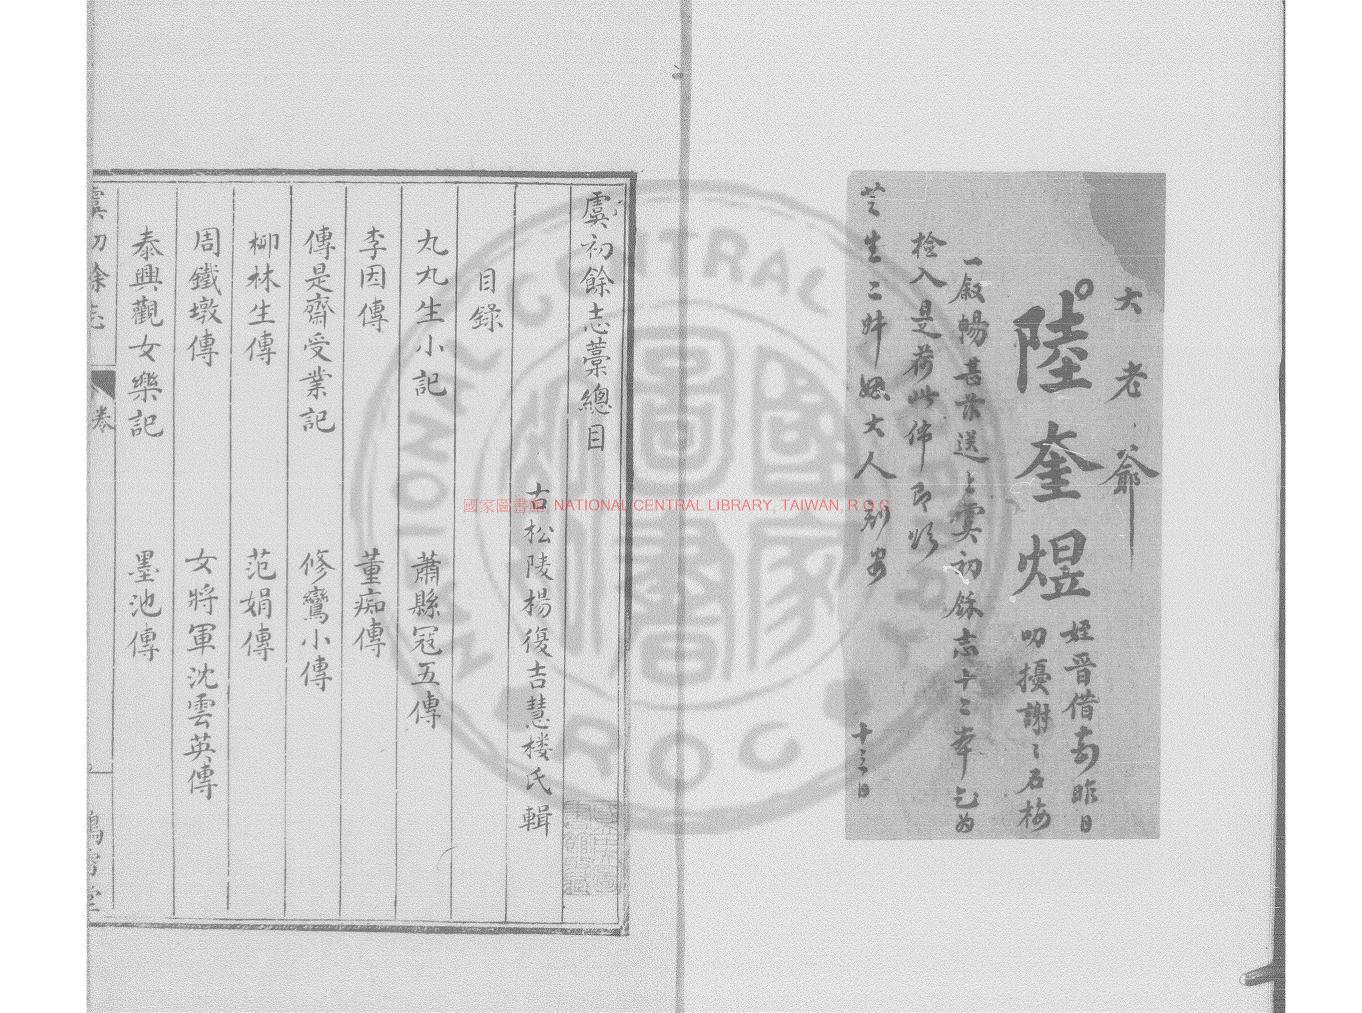 大老爺
陸奎煜
姪晋借
昨日
叨擾謝〻石梅
一敘暢甚茲送上虞初餘志十二本乞為
檢入是荷此佈即頌
芝生二
大人
安
十三日
虞初餘志藁總目
古松陵楊復吉慧楼氏輯
目錄
丸丸生小記
蕭縣冦五傳
李因傳
董痴傳
傳是齋受業記
修鸞小傳
柳林生傳
范娟傳
周鐵墩傳
女將軍沈雲英傳
泰興觀女樂記
墨池傳
虞初餘志
卷
國家圖書館 NATIONAL CENTRAL LIBRARY, TAIWAN, R.O.C
NATIONAL CENTRAL LIBRARY
R O C
國家圖書